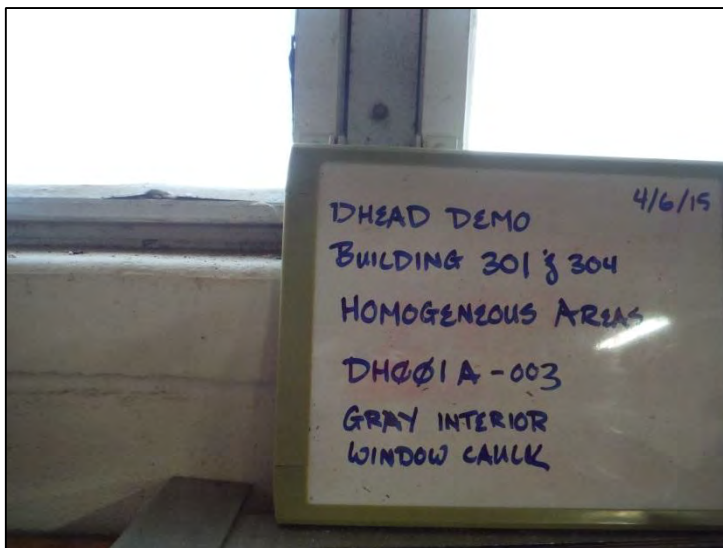 4/6/15
DHEAD DEMO
BUILDING 301 & 304
HOMOGENEOUS AREAS
DHØØ1A-003
GRAY INTERIOR
WINDOW CAULK